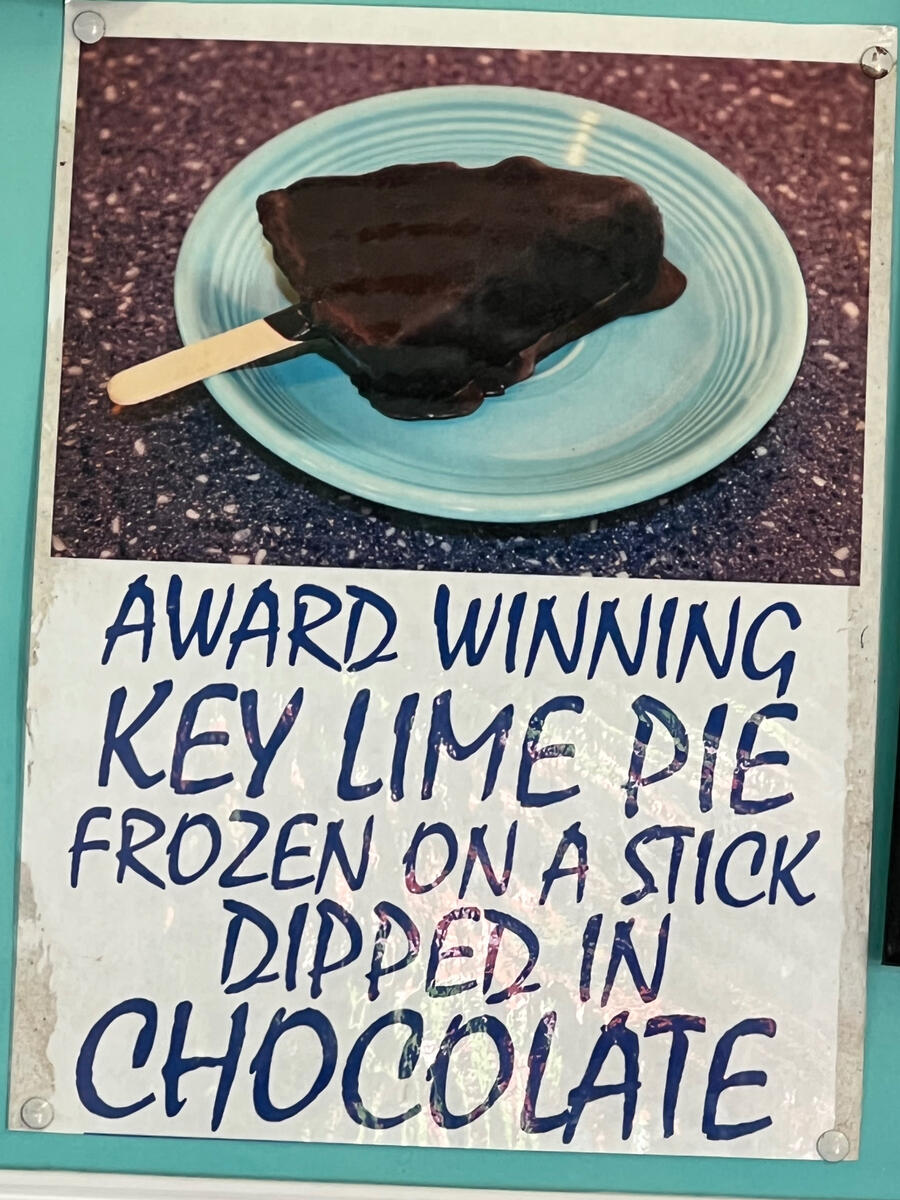 AWARD WINNING
KEY LIME PIE
FROZEN ON A STICK
DIPPED IN
CHOCOLATE